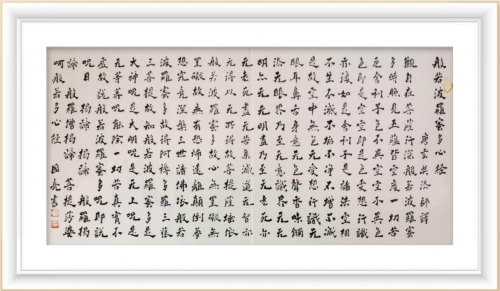 般若波羅蜜多心經
唐玄奘法師譯
觀自在菩薩行深般若波羅蜜
多時照見五蘊皆空度一切苦
厄舍利子色不異空空不異色
色即是空空即是色受想行識
亦復如是舍利子是諸法空相
不生不滅不垢不淨不增不減
是故空中無色无受想行識无
眼耳鼻舌身意无色聲香味觸
法无眼界乃至无意識界无
明亦无无明盡乃至无老死亦
无老死盡无苦集滅道无智亦
无得以无所得故菩提薩埵依
般若波羅蜜多故心无罣礙无
罣礙故無有恐怖遠離顛倒夢
想究竟涅槃三世諸佛依般若
波羅蜜多故得阿耨多羅三藐
三菩提故知般若波羅蜜多是
大神呪是大明呪是无上呪是
无等等呪能除一切苦真實不
虛故說般若波羅蜜多呪即說
呪曰 揭諦揭諦 般羅揭
諦 般羅僧揭諦 菩提莎婆
訶般若多心經 国亮書